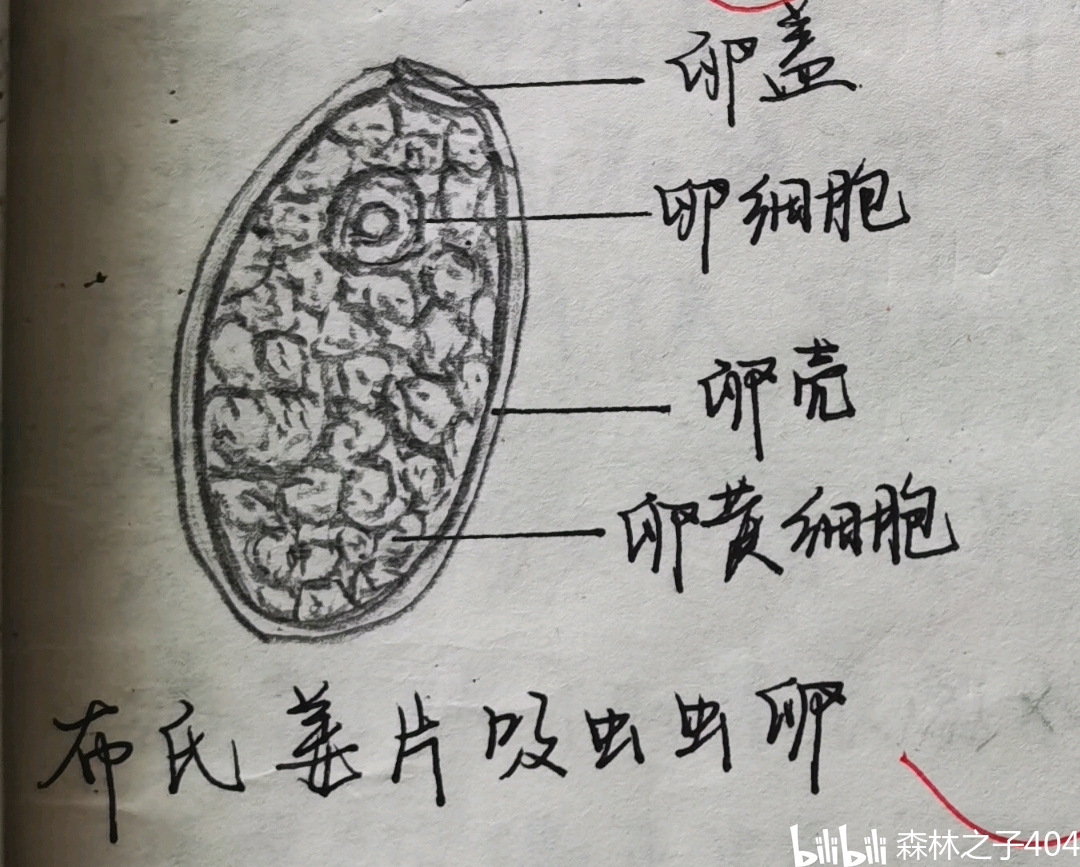 卵盖
卵细胞
卵壳
卵黄细胞
布氏姜片吸虫虫卵
bilibili 森林之子404